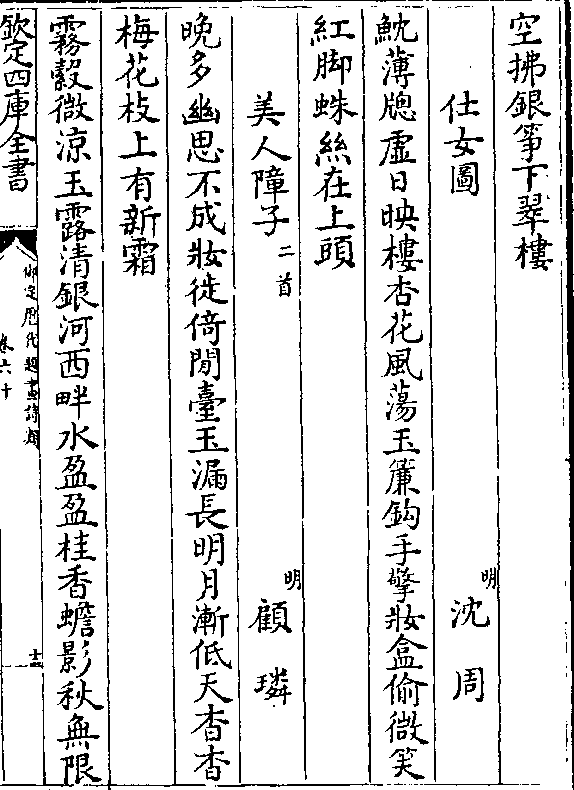 空拂銀箏下翠樓
仕女圖 明 沈周
魫薄牕虛日映樓杏花風蕩玉簾鈎手擎妝盒偷微笑
紅脚蛛絲在上頭
美人障子 二首 明 顧璘
晚多幽思不成妝徙倚閒臺玉漏長明月漸低天杳杳
梅花枝上有新霜
霧縠微涼玉露清銀河西畔水盈盈桂香蟾影秋無限
欽定四庫全書
御定歷代題畫詩類
卷六十